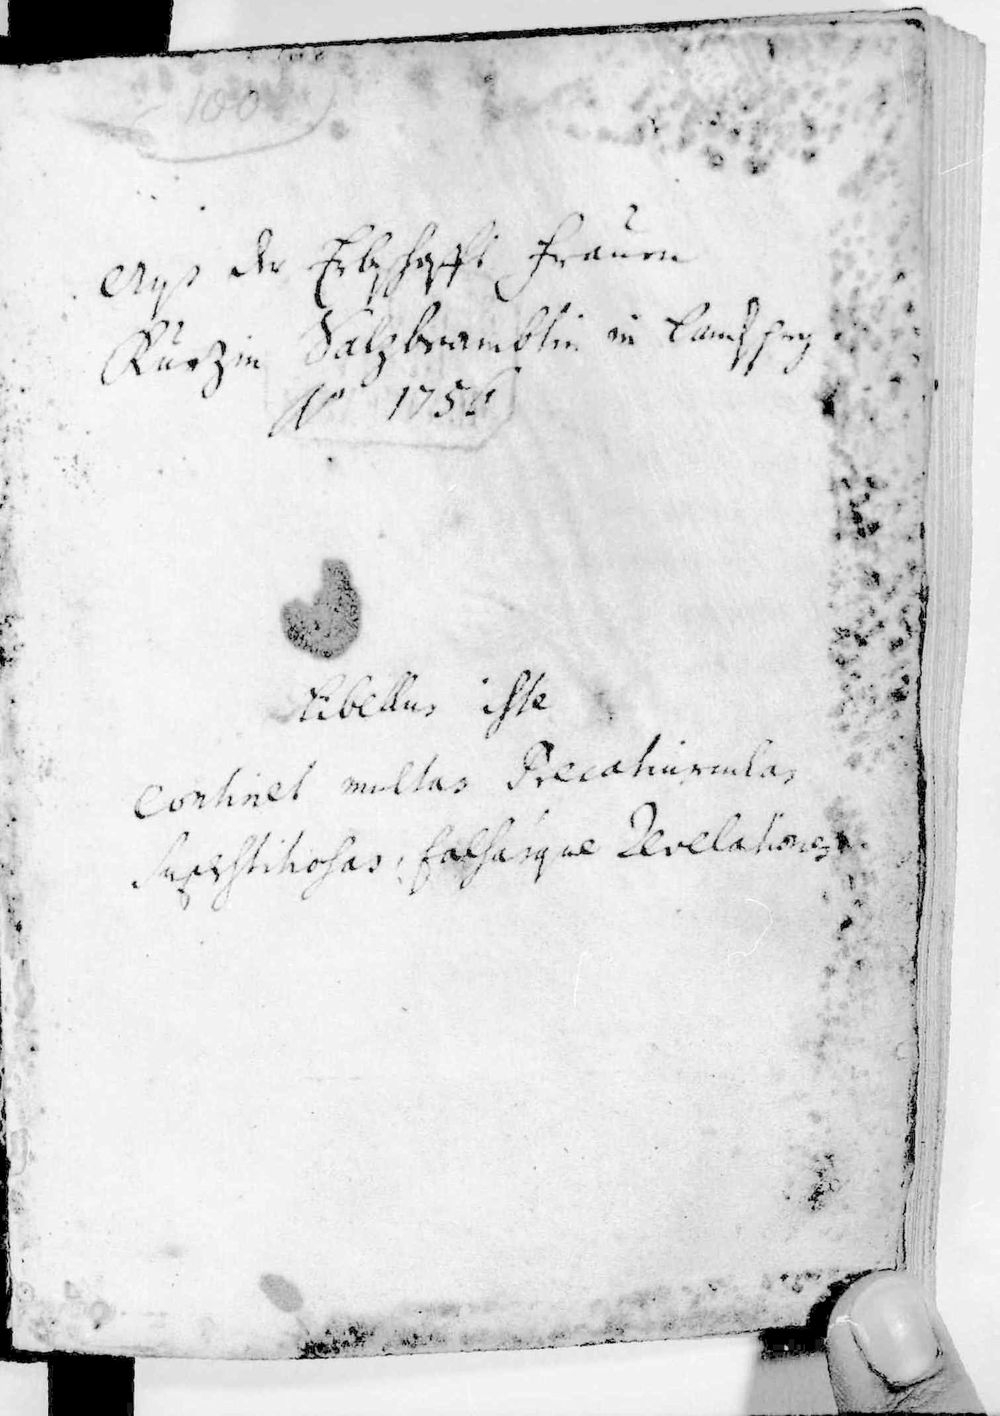 100
Auß der Erbschafft Frauen
Kurzin Salzbeambtin in
Ao 175
Libellus iste
Continet multas Precatiunculas
Superstitiosas, falsasque Revelationes